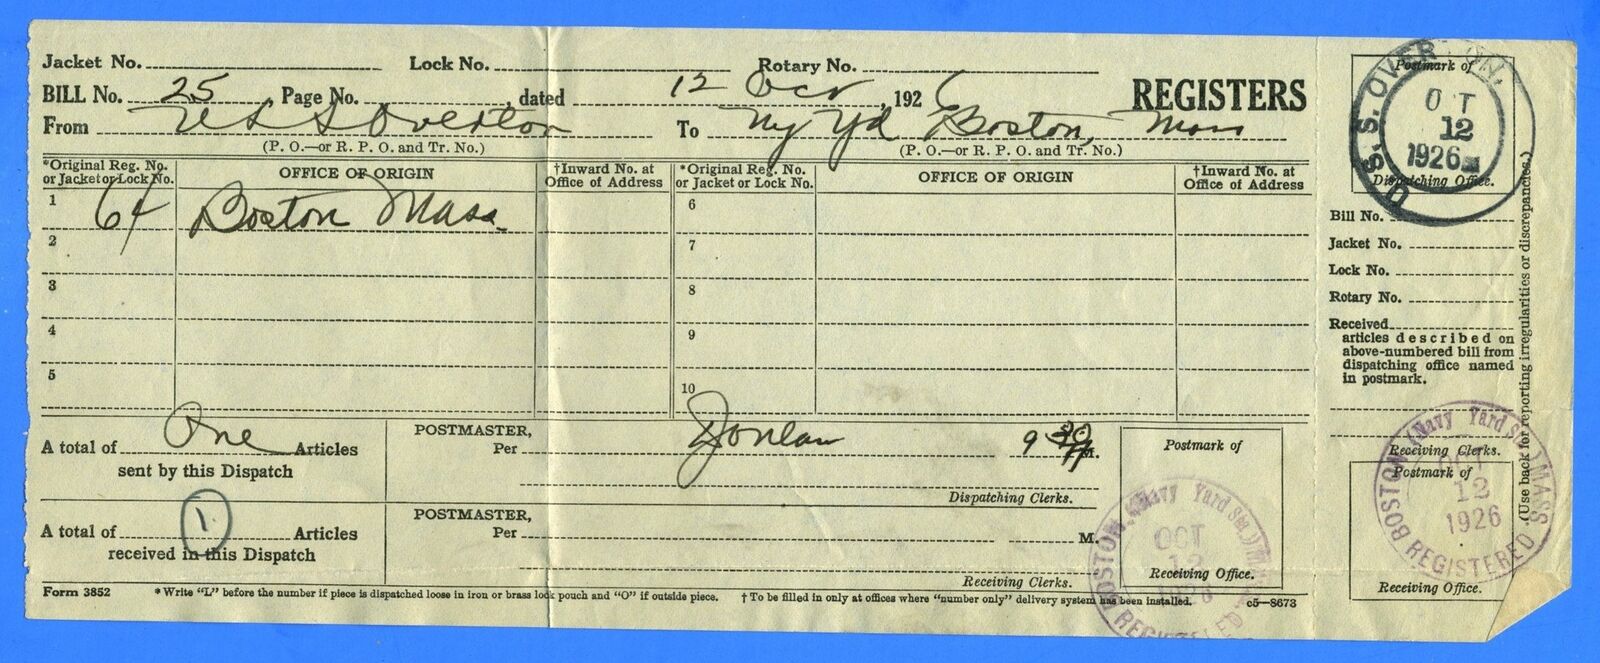 Jacket No. Lock No. Rotary No.
BILL No. 25 , Page No. , dated 12 Oct , 1926 REGISTERS
From U S S Overton To Ny Yd Boston, Mass
(P. O.—or R. P. O. and Tr. No.) (P. O.—or R. P. O. and Tr. No.)
*Original Reg. No. or Jacket or Lock No. OFFICE OF ORIGIN †Inward No. at Office of Address *Original Reg. No. or Jacket or Lock No. OFFICE OF ORIGIN †Inward No. at Office of Address
1 64 Boston Mass. 6
2 7
3 8
4 9
5 10
A total of One Articles sent by this Dispatch
POSTMASTER,
Per Donlan 9 M.
Dispatching Clerks.
A total of 1 Articles received in this Dispatch
POSTMASTER,
Per M.
Receiving Clerks.
Postmark of
Receiving Office.
BOSTON (Navy Yard Sta.) MASS
OCT
12
1926
REGISTERED
Form 3852 *Write "L" before the number if piece is dispatched loose in iron or brass lock pouch and "O" if outside piece. †To be filled in only at offices where "number only" delivery system has been installed. c5—8673
Postmark of
Dispatching Office.
U.S.S. OVERTON.
OCT
12
1926
Bill No.
Jacket No.
Lock No.
Rotary No.
Received
articles described on
above-numbered bill from
dispatching office named
in postmark.
Receiving Clerks.
Postmark of
Receiving Office.
BOSTON (Navy Yard Sta.) MASS
OCT
12
1926
REGISTERED
(Use back for reporting irregularities or discrepancies.)